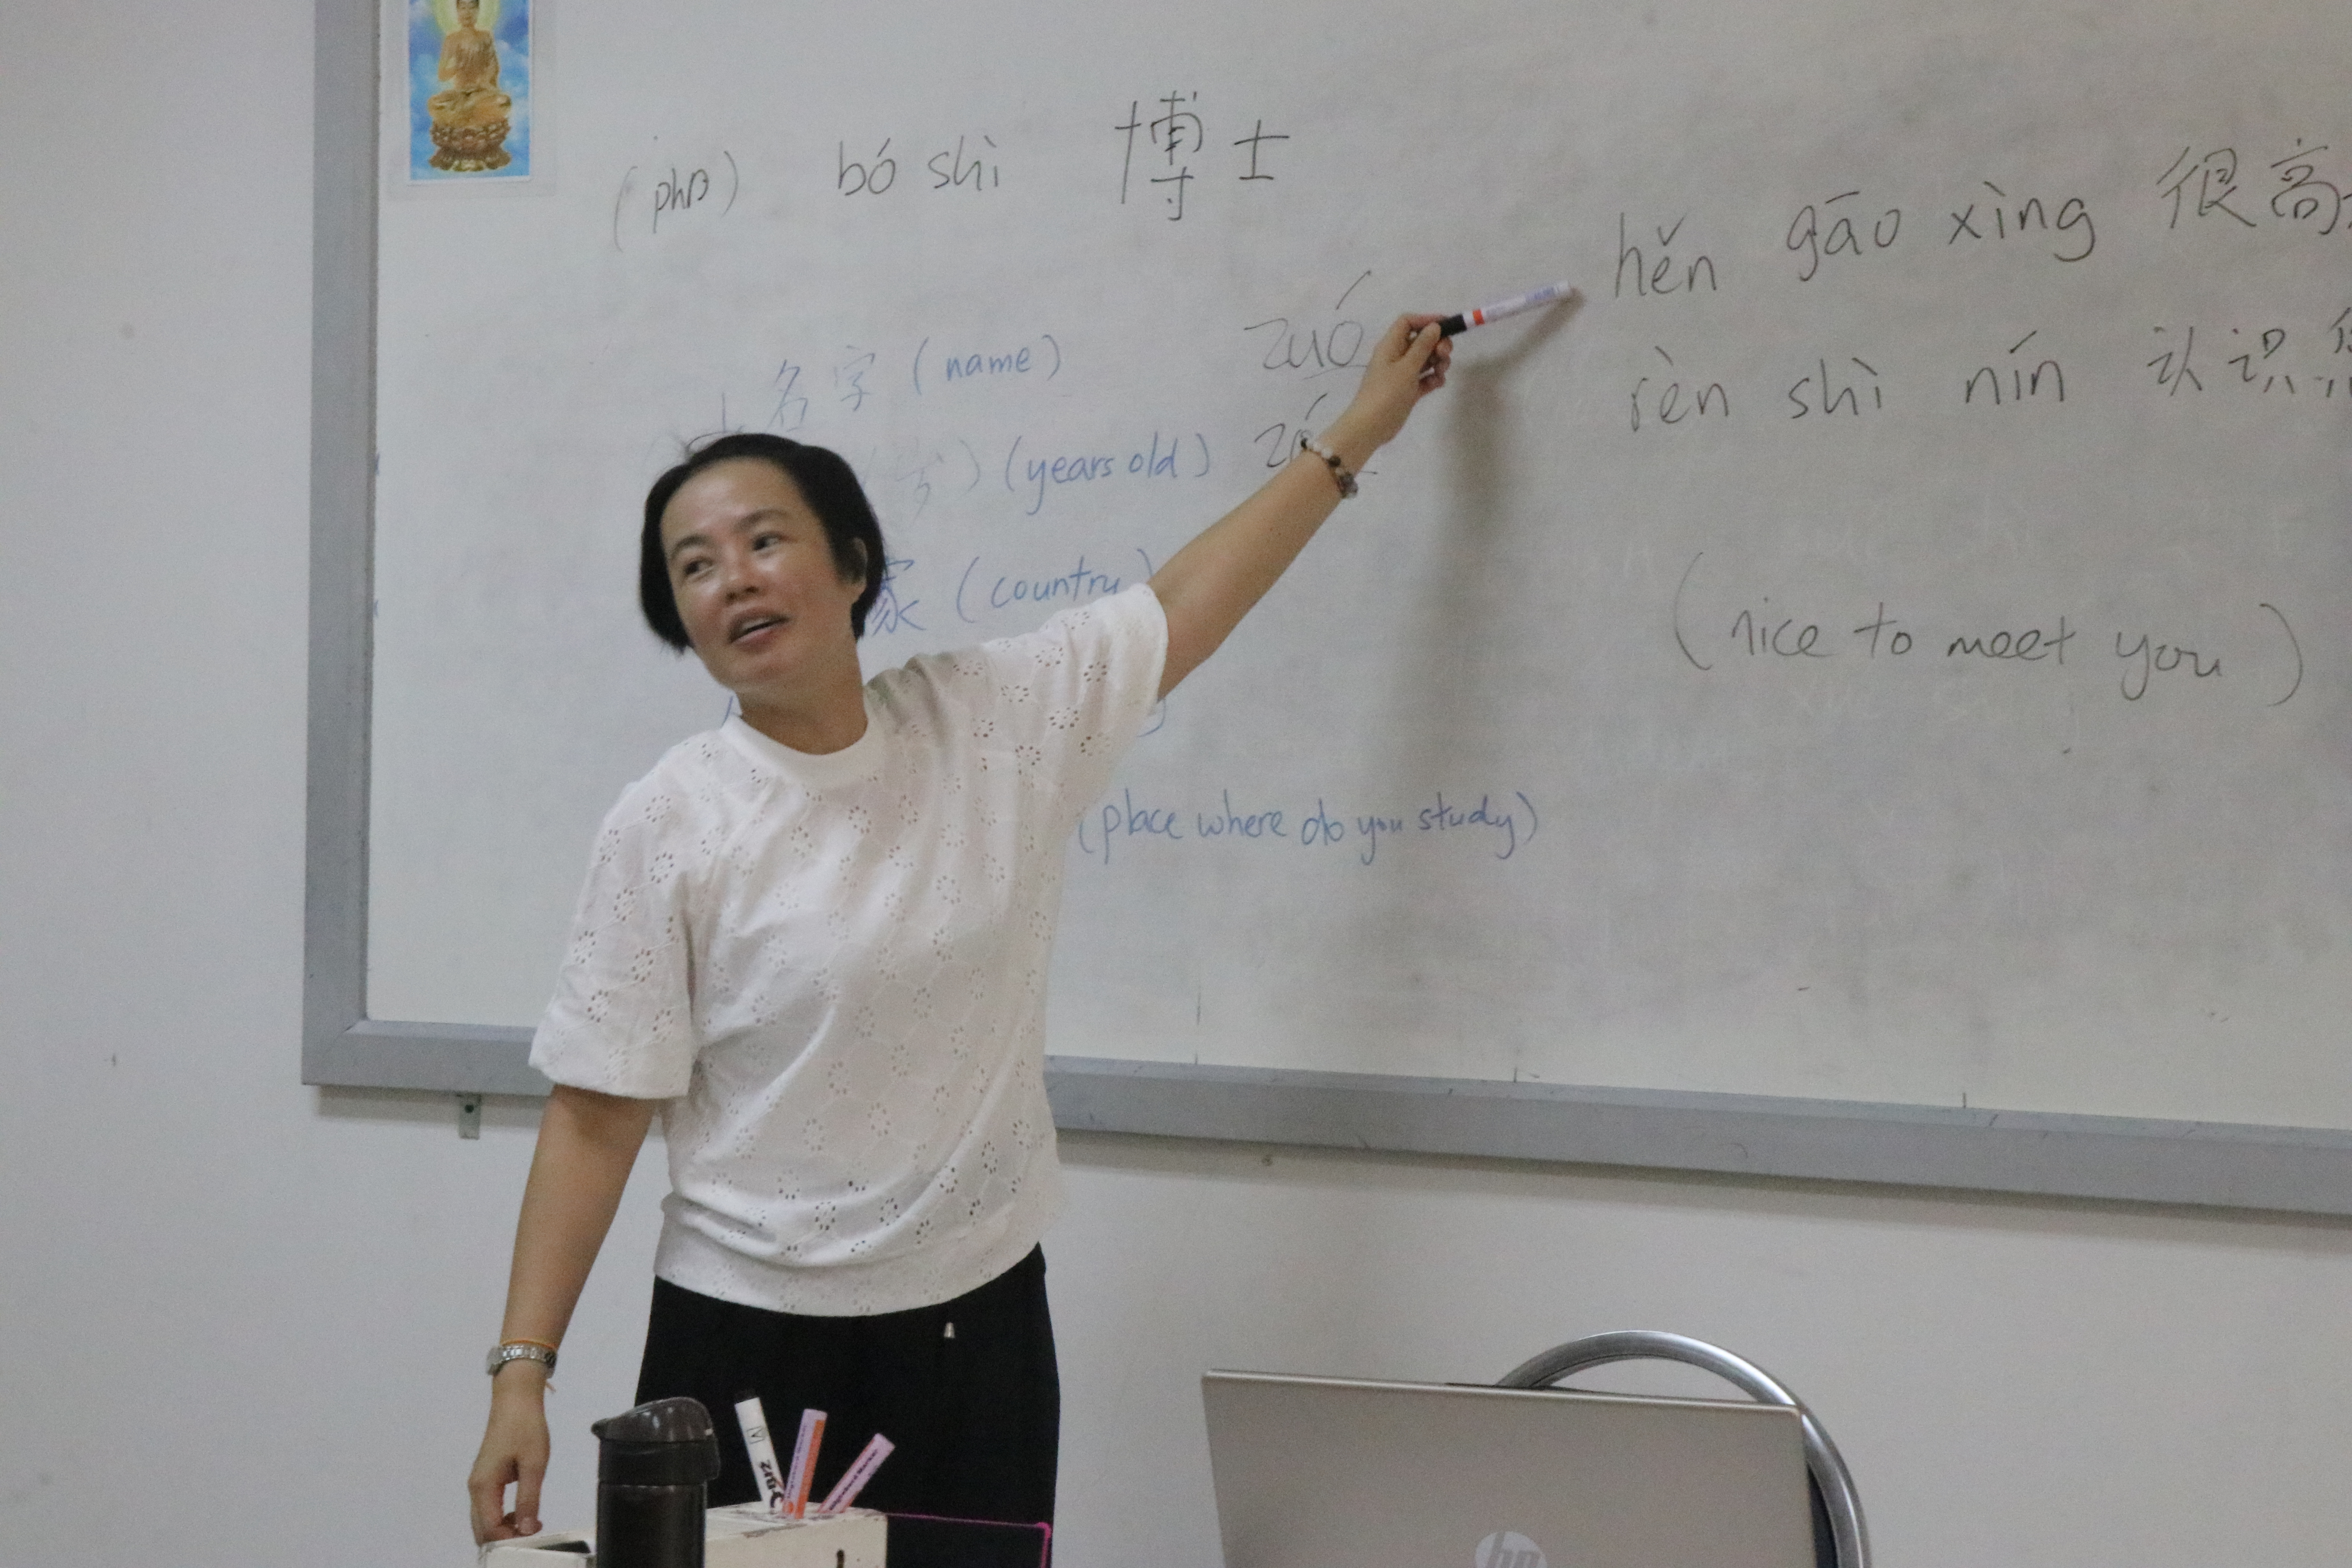 (phD) bó shì 博士
hěn gāo xìng 很高
rèn shì nín 认识您
(nice to meet you)
名字 (name)
zuó
岁) (years old)
家 (country)
(place where do you study)
hp